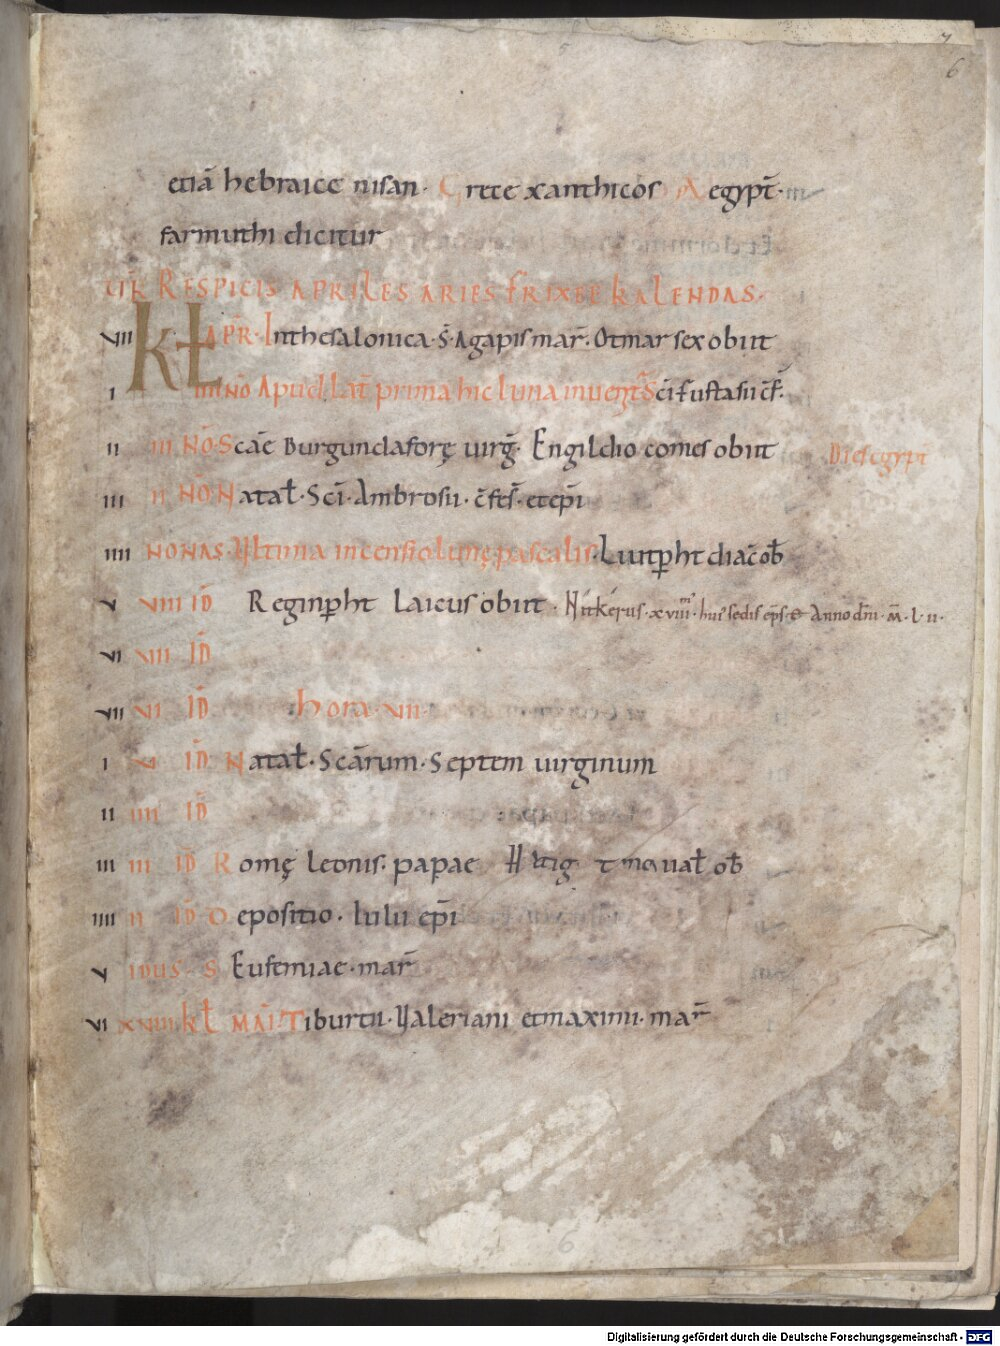 7
6
etiā hebraice nisan. Grece xanthicos Aegypt̄.
farmuthi dicitur
RESPICIS APRILES ARIES FRIXEE KALENDAS.
VIII KŁ APR̄. Inthesalonica. S̄. Agapis mar̄. Otmar sex obiit
I IIII NO Apud Lat̄ prima hic luna
II III NŌ. Scāe Burgundaforę uirḡ. Engildio comes obiit Dies egypt̄
III II NŌ Natał. Scī. Ambrosii. c̄fes̄. et ep̄i
IIII NONAS. Ultima incensio lunę pascalis. Luitp̄ht diac̄ ob̄
V VIII ID̄ Reginp̄ht laicus obiit. Nitkerus. xviii. hui' sedis ep̄s. Anno dn̄i. M̄. L. ii.
VI VII ID̄
VII VI ID̄ hora. VII.
I V ID̄ Natał. Scārum. Septem uirginum
II IIII ID̄
III III ID̄ Romę Leonis. papae
IIII II ID̄ Depositio. luli ep̄i
V IDUS. S Eufemiae. mar̄
VI XVIII. KŁ MAĪ. Tiburtii. Ualeriani et maximi. mar̄
6
Digitalisierung gefördert durch die Deutsche Forschungsgemeinschaft - DFG